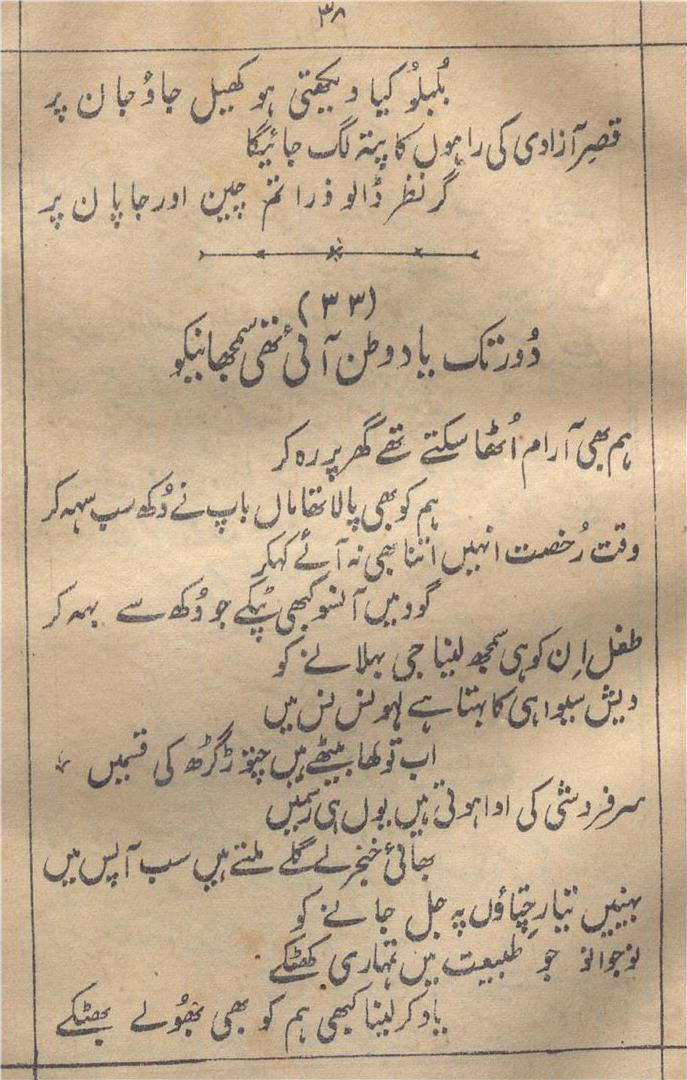 ۳۸
بُلبلوُ کیا دیکھتی ہو کھیل جاؤ جان پر
قصرِ آزادی کی راہوں کا پتہ لگ جائیگا
گر نظر ڈالو ذرا تم چین اور جاپان پر
(۳۳)
دُور تک یادِ وطن آئی تھی سمجھانیکو
ہم بھی آرام اُٹھا سکتے تھے گھر پر رہ کر
ہم کو بھی پالا تھا ماں باپ نے دُکھ سہہ سہہ کر
وقت رُخصت انہیں اتنا بھی نہ آئے کہکر
گود میں آنسو کبھی ٹپکے جو دُکھ سے بہہ کر
طفل اِن کو ہی سمجھ لینا جی بہلانے کو
دیش سیوا ہی کا بہتا ہے لہو نس نس میں
اب تو کھا بیٹھے ہیں چتوڑ گڑھ کی قسمیں
سرفروشی کی ادا ہوتی ہیں یوں ہی رسمیں
بھائی خنجر سے گلے ملتے ہیں سب آپس میں
بہنیں تیار چِتاؤں پہ جل جانے کو
نوجوانو جو طبیعت میں تمہاری کھٹکے
یاد کر لینا کبھی ہم کو بھی بھُولے بھٹکے